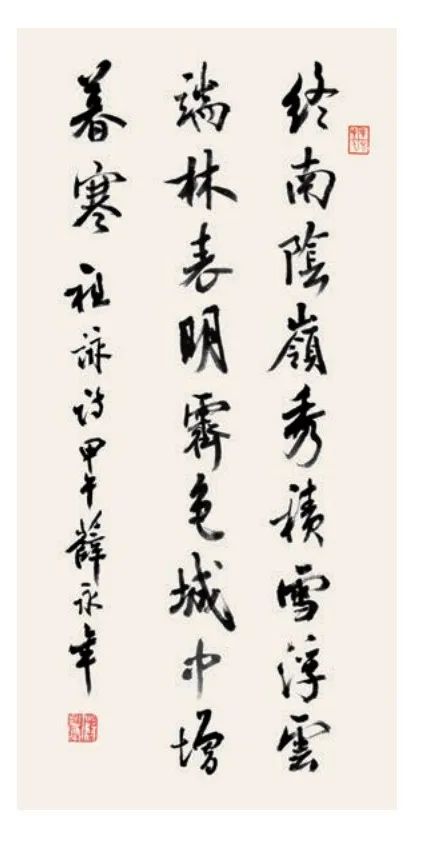 終南陰嶺秀積雪浮雲
端林表明霽色城中增
暮寒 祖詠詩甲午薛永年